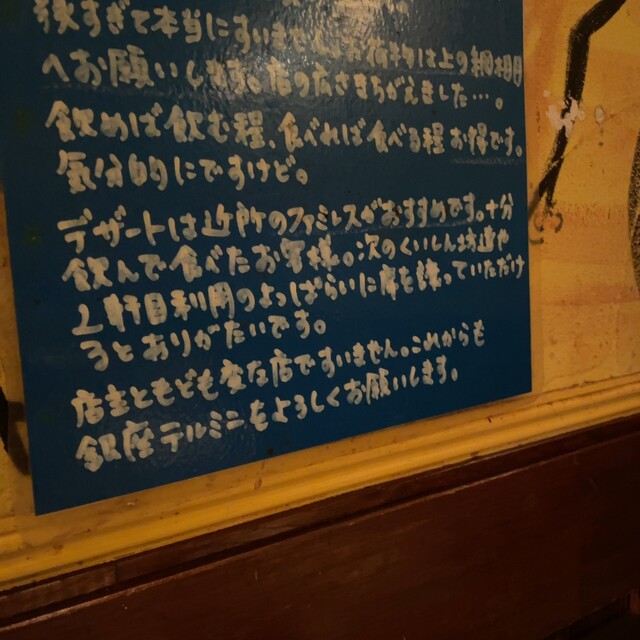 狭すぎて本当にすいません。お荷物は上の網棚
へお願いします。店の広さまちがえました…。
飲めば飲む程、食べれば食べる程お得です。
気分的にですけど。
デザートは近所のファミレスがおすすめです。十分
飲んで食べたお客様。次のくいしん坊達や
2軒目利用のよっぱらいに席を譲っていただけ
るとありがたいです。
店主ともども変な店ですいません。これからも
銀座テルミニをよろしくお願いします。